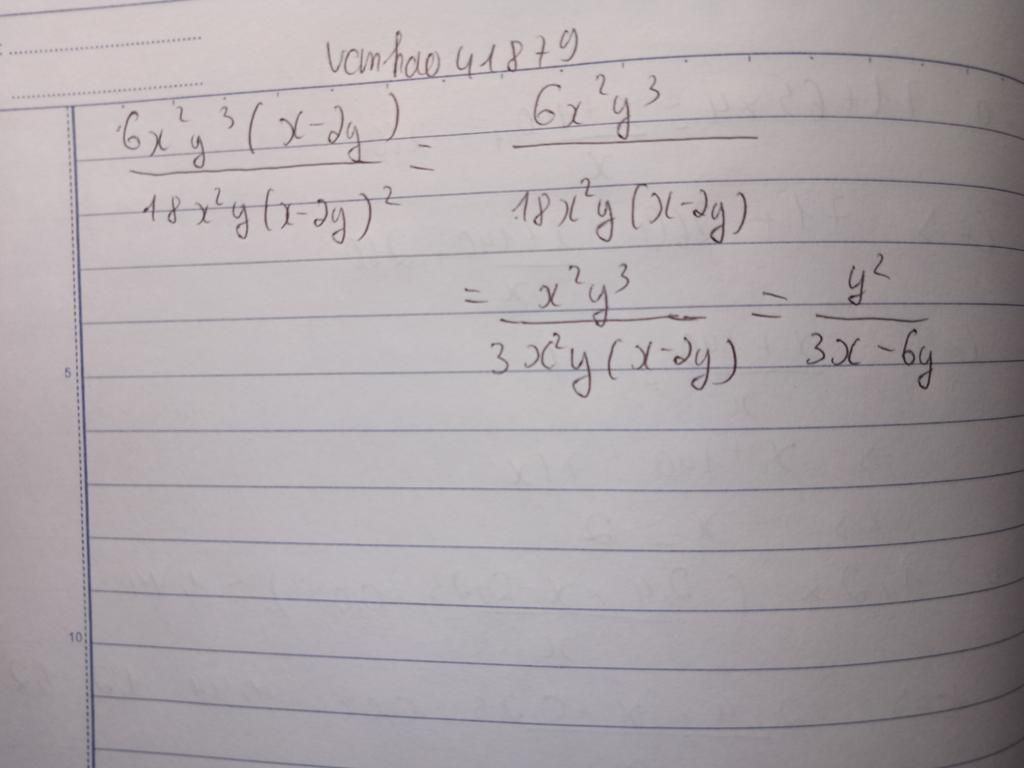 vanhao41879
6x²y³(x-2y) / 18x²y(x-2y)² = 6x²y³ / 18x²y(x-2y)
= x²y³ / 3x²y(x-2y) = y² / 3x-6y
5
10